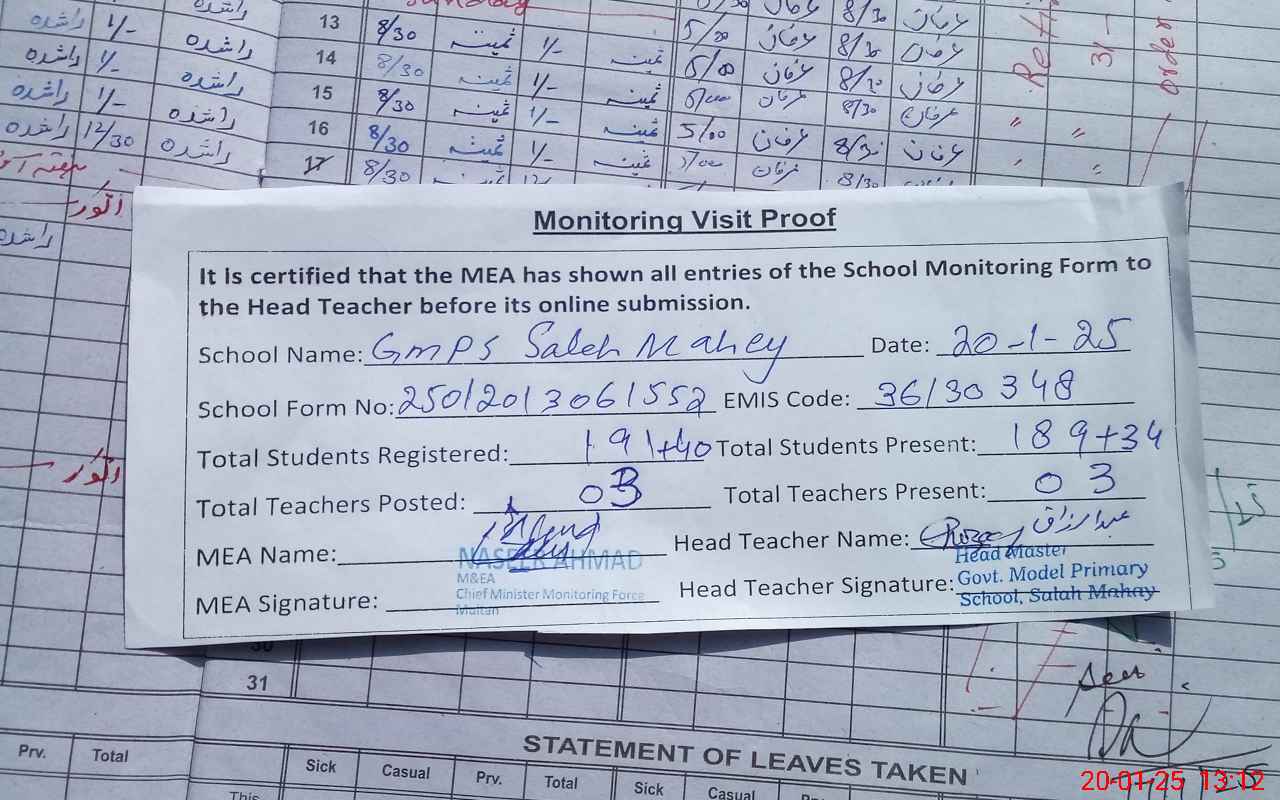 راشده 1/- راشده 13 8/30 ثمینہ 1/- ثمینہ 5/00 عرفان 8/30 عرفان
راشده 1/- راشده 14 8/30 ثمینہ 1/- ثمینہ 5/00 عرفان 8/30 عرفان
راشده 1/- راشده 15 8/30 ثمینہ 1/- ثمینہ 5/00 عرفان 8/30 عرفان
راشده 12/30 راشده 16 8/30 ثمینہ 1/- ثمینہ 5/00 عرفان 8/30 عرفان
17 8/30 ثمینہ 5/00 عرفان 8/30
اتوار
راشده
اتوار
order
Monitoring Visit Proof
It is certified that the MEA has shown all entries of the School Monitoring Form to
the Head Teacher before its online submission.
School Name: GMPS Saleh Mahey Date: 20-1-25
School Form No: 25012013061552 EMIS Code: 36130348
Total Students Registered: 191+40 Total Students Present: 189+34
Total Teachers Posted: 03 Total Teachers Present: 03
MEA Name: Head Teacher Name: عبدالرزاق
NASEER AHMAD
M&EA
Chief Minister Monitoring Force
Multan
MEA Signature: Head Teacher Signature:
Head Master
Govt. Model Primary
School, Salah Mahay
30
31
Seen
STATEMENT OF LEAVES TAKEN
Prv. Total Sick Casual Prv. Total Sick Casual
This
20-01-25 13:12